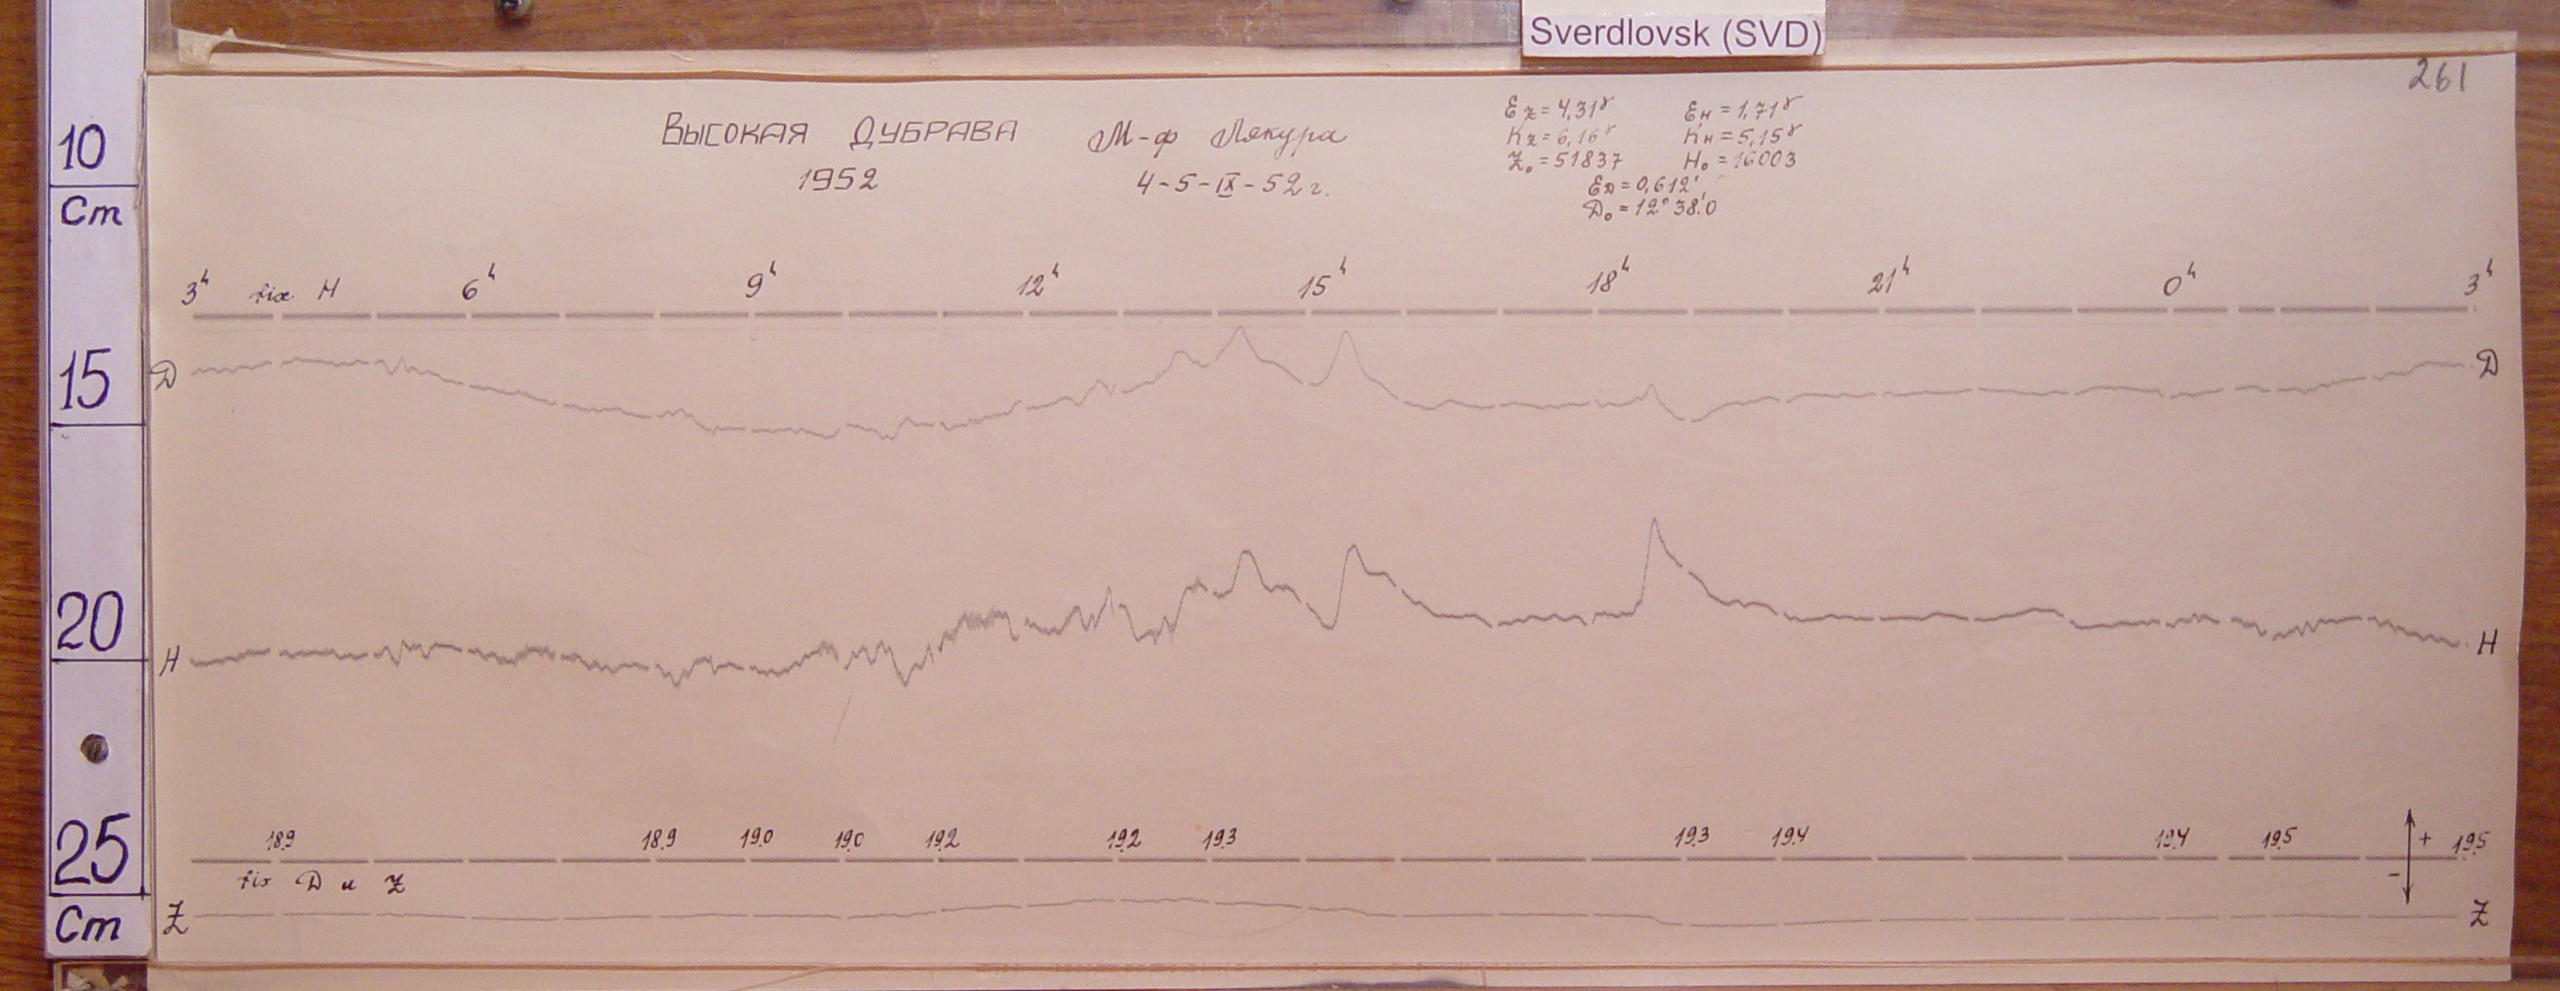 Sverdlovsk (SVD)
261
Высокая Дубрава М-ф Лякура
1952 4-5-IX-52 г.
Ez = 4,31γ Eн = 1,71γ
Kz = 6,16γ Kн = 5,15γ
Z₀ = 51837 H₀ = 16003
EД = 0,612'
Д₀ = 12° 38.'0
10
Cm
3ʰ fix H 6ʰ 9ʰ 12ʰ 15ʰ 18ʰ 21ʰ 0ʰ 3ʰ
15
Д Д
20
H H
25
18.9 18.9 19.0 19.0 19.2 19.2 19.3 19.3 19.4 19.4 19.5 + 19.5
-
fix Д и Z
Cm
Z Z